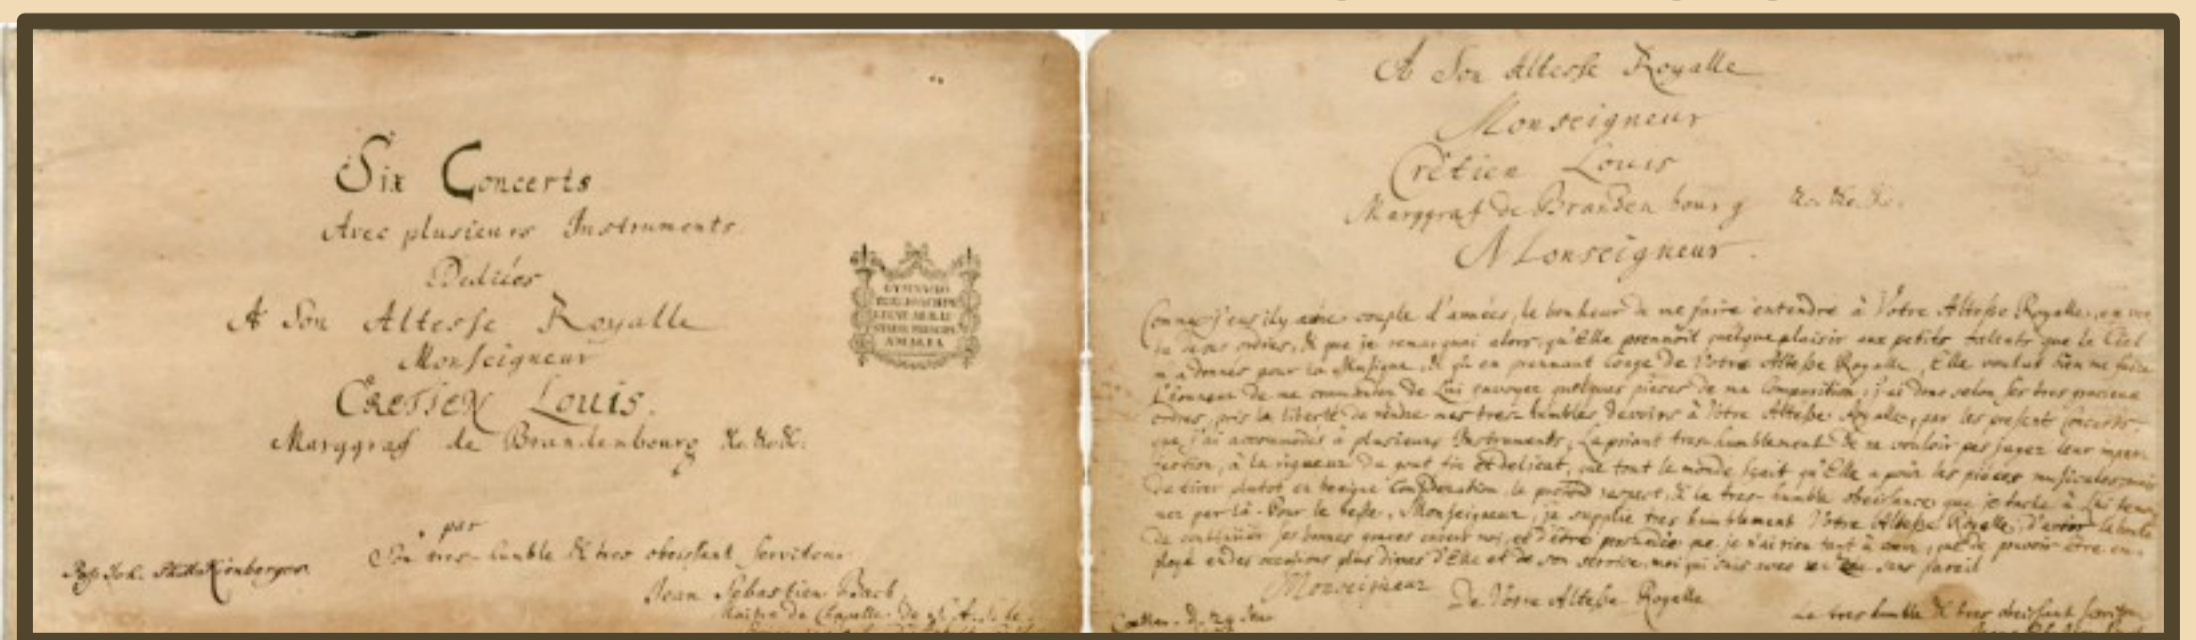 Six Concerts
Avec plusieurs Instruments
Dediées
A Son Altesse Royalle
Monseigneur
CRETIEN Louis.
Marggraf de Brandenbourg &c.&c.&c.
par
Son tres-humble & tres obeissant Serviteur
Jean Sebastien Bach,
Maitre de Chapelle de S. A. S. le
Joh. Kirnberger
GYMNASIO
AMALIA
A Son Altesse Royalle
Monseigneur
Crètien Louis
Marggraf de Brandenbourg &c.&c.&c.
Monseigneur.
Comme j'eus il y a une couple d'années, le bonheur de me faire entendre à Votre Altesse Royalle, en ver
tu de ses ordres, & que je remarquai alors, qu'Elle prennoit quelque plaisir aux petits talents que le Ciel
m'a donnés pour la Musique, & qu'en prennant Conge de Votre Altesse Royalle, Elle voulut bien me faire
l'honneur de me commander de Lui envoyer quelques pieces de ma Composition: j'ai donc selon ses tres gracieux
ordres, pris la liberté de rendre mes tres-humbles devoirs à Votre Altesse Royalle, par les presents Concerts,
que j'ai accommodés à plusieurs Instruments; La priant tres-humblement de ne vouloir pas juger leur imper
fection, à la rigueur du gout fin et delicat, que tout le monde sçait qu'Elle a pour les pièces musicales; mais
de tirer plutot en benigne Consideration, le profond respect, & la tres-humble obeissance que je tache à Lui temoi
ner par là. Pour le reste, Monseigneur, je supplie tres humblement Votre Altesse Royalle, d'avoir la bonté
de continüer ses bonnes graces envers moi, et d'être persuadée que je n'ai rien tant à cœur, que de pouvoir être em-
ployé en des occasions plus dignes d'Elle et de son service, moi qui suis avec un zele sans pareil
Monseigneur
De Votre Altesse Royalle
Le tres humble & tres obeissant serviteur
Coethen. d. 24 Mar